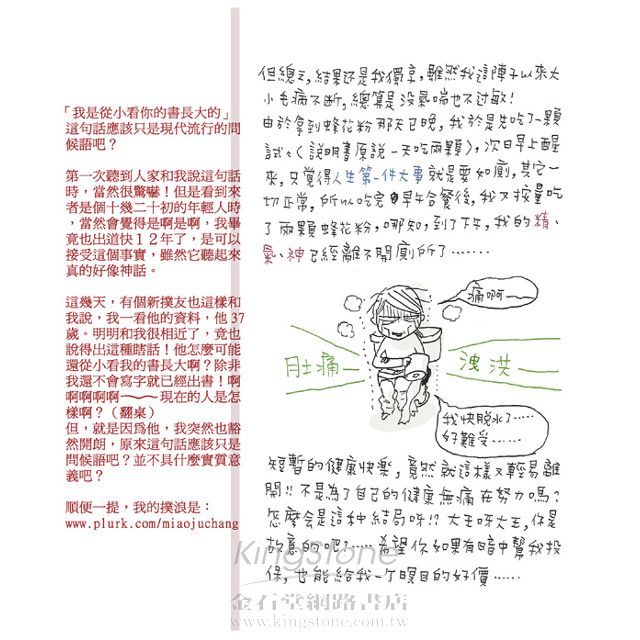 「我是從小看你的書長大的」
這句話應該只是現代流行的問
候語吧？
第一次聽到人家和我說這句話
時，當然很驚嚇！但是看到來
者是個十幾二十初的年輕人時
，當然會覺得是啊是啊，我畢
竟也出道快１２年了，是可以
接受這個事實，雖然它聽起來
真的好像神話。
這幾天，有個新撲友也這樣和
我說，我一看他的資料，他 37
歲。明明和我很相近了，竟也
說得出這種瞎話！他怎麼可能
還從小看我的書長大啊？除非
我還不會寫字就已經出書！啊
啊啊啊啊～～現在的人是怎
樣啊？（翻桌）
但，就是因爲他，我突然也豁
然開朗，原來這句話應該只是
問候語吧？並不具什麼實質意
義吧？
順便一提，我的撲浪是：
www.plurk.com/miaojuchang
但總之，結果還是我獨享，雖然我這陣子以來大
小毛病不斷，總算是沒氣喘也不过敏！
由於拿到蜂花粉那天已晚，我於是先吃了一顆
試試（說明書原說一天吃兩顆），次日早上醒
來，只覺得人生第一件大事就是要如廁，其它一
切正常，所以吃完早午合餐後，我又按量吃
了兩顆蜂花粉，哪知，到了下午，我的精、
氣、神已經離不開廁所了……
痛啊～
肚痛
洩洪
我快脫水了…
好難受……
短暫的健康快樂，竟然就這樣又輕易離
開!! 不是為了自己的健康無痛在努力嗎？
怎麼會是這種結局呀!? 大王呀大王，你是
故意的吧？……希望你如果有暗中幫我投
保，也能給我一个瞑目的好價……
KingStone
金石堂網路書店
www.kingstone.com.tw